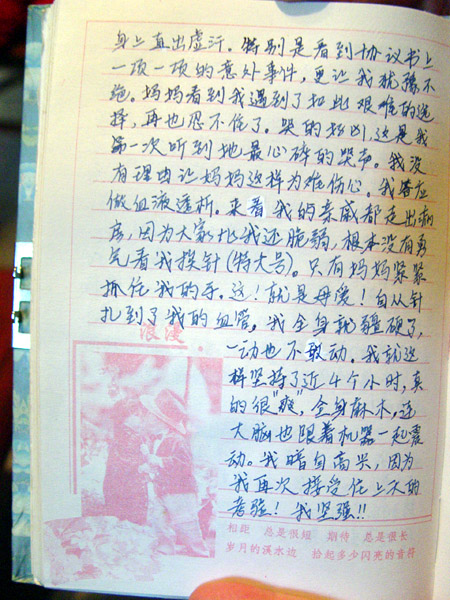 身上直出虚汗。特别是看到协议书上
一项一项的意外事件,更让我犹豫不
绝。妈妈看到我遇到了如此艰难的选
择,再也忍不住了。哭的好凶,这是我
第一次听到她最心碎的哭声。我没
有理由让妈妈这样为难伤心。我答应
做血液透析。来看我的亲戚都走出病
房,因为大家比我还脆弱,根本没有勇
气看我换针(特大号)。只有妈妈紧紧
抓住我的手。这!就是母爱!自从针
扎到了我的血管,我全身就疆硬了,
一动也不敢动。我就这
样坚持了近4个小时,真
的很"酸",全身麻木,连
大脑也跟着机器一起震
动。我暗自高兴,因为
我再次接受住上天的
考验!我坚强!!
浪漫
相距 总是很短 期待 总是很长
岁月的溪水边 拾起多少闪亮的音符